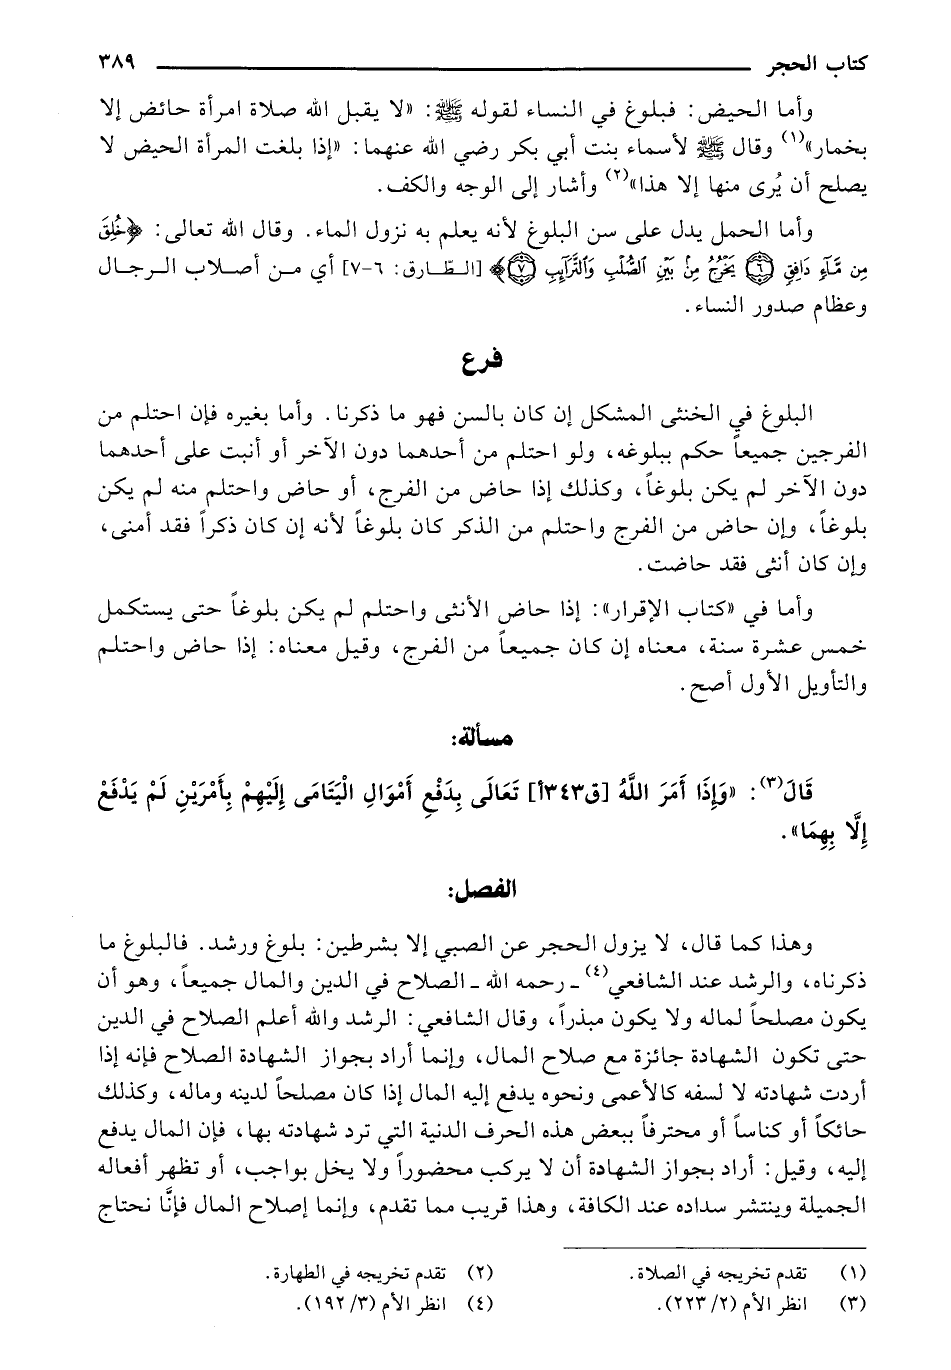 كتاب الحجر ٣٨٩
وأما الحيض: فبلوغ في النساء لقوله ﷺ: «لا يقبل الله صلاة امرأة حائض إلا
بخمار»(١) وقال ﷺ لأسماء بنت أبي بكر رضي الله عنهما: «إذا بلغت المرأة الحيض لا
يصلح أن يُرى منها إلا هذا»(٢) وأشار إلى الوجه والكف.
وأما الحمل يدل على سن البلوغ لأنه يعلم به نزول الماء. وقال الله تعالى: ﴿خُلِقَ
مِن مَّآءٍ دَافِقٍ ۝٦ يَخْرُجُ مِنۢ بَيْنِ ٱلصُّلْبِ وَٱلتَّرَآئِبِ ۝٧﴾ [الطّارق: ٦-٧] أي من أصلاب الرجال
وعظام صدور النساء.
فرع
البلوغ في الخنثى المشكل إن كان بالسن فهو ما ذكرنا. وأما بغيره فإن احتلم من
الفرجين جميعاً حكم ببلوغه، ولو احتلم من أحدهما دون الآخر أو أنبت على أحدهما
دون الآخر لم يكن بلوغاً، وكذلك إذا حاض من الفرج، أو حاض واحتلم منه لم يكن
بلوغاً، وإن حاض من الفرج واحتلم من الذكر كان بلوغاً لأنه إن كان ذكراً فقد أمنى،
وإن كان أنثى فقد حاضت.
وأما في «كتاب الإقرار»: إذا حاض الأنثى واحتلم لم يكن بلوغاً حتى يستكمل
خمس عشرة سنة، معناه إن كان جميعاً من الفرج، وقيل معناه: إذا حاض واحتلم
والتأويل الأول أصح.
مسألة:
قَالَ(٣): «وَإِذَا أَمَرَ اللَّهُ [ق٣٤٣أ] تَعَالَى بِدَفْعِ أَمْوَالِ الْيَتَامَى إِلَيْهِمْ بِأَمْرَيْنِ لَمْ يَدْفَعْ
إِلَّا بِهِمَا».
الفصل:
وهذا كما قال، لا يزول الحجر عن الصبي إلا بشرطين: بلوغ ورشد. فالبلوغ ما
ذكرناه، والرشد عند الشافعي(٤) ـ رحمه الله ـ الصلاح في الدين والمال جميعاً، وهو أن
يكون مصلحاً لماله ولا يكون مبذراً، وقال الشافعي: الرشد والله أعلم الصلاح في الدين
حتى تكون الشهادة جائزة مع صلاح المال، وإنما أراد بجواز الشهادة الصلاح فإنه إذا
أردت شهادته لا لسفه كالأعمى ونحوه يدفع إليه المال إذا كان مصلحاً لدينه وماله، وكذلك
حائكاً أو كناساً أو محترفاً ببعض هذه الحرف الدنية التي ترد شهادته بها، فإن المال يدفع
إليه، وقيل: أراد بجواز الشهادة أن لا يركب محضوراً ولا يخل بواجب، أو تظهر أفعاله
الجميلة وينتشر سداده عند الكافة، وهذا قريب مما تقدم، وإنما إصلاح المال فإنَّا نحتاج
(١) تقدم تخريجه في الصلاة. (٢) تقدم تخريجه في الطهارة.
(٣) انظر الأم (٢/ ٢٢٣). (٤) انظر الأم (٣/ ١٩٢).